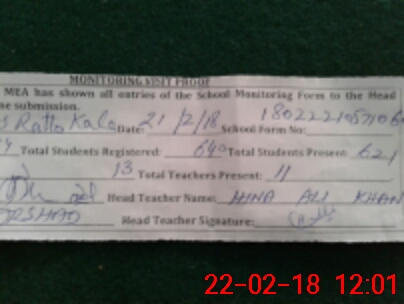 MONITORING VISIT PROOF
MEA has shown all entries of the School Monitoring Form to the Head
submission.
Ratta Kala Date: 21/2/18 School Form No:
Total Students Registered: 640 Total Students Present: 621
13 Total Teachers Present: 11
Head Teacher Name: HINA ALI KHAN
Head Teacher Signature:
22-02-18 12:01